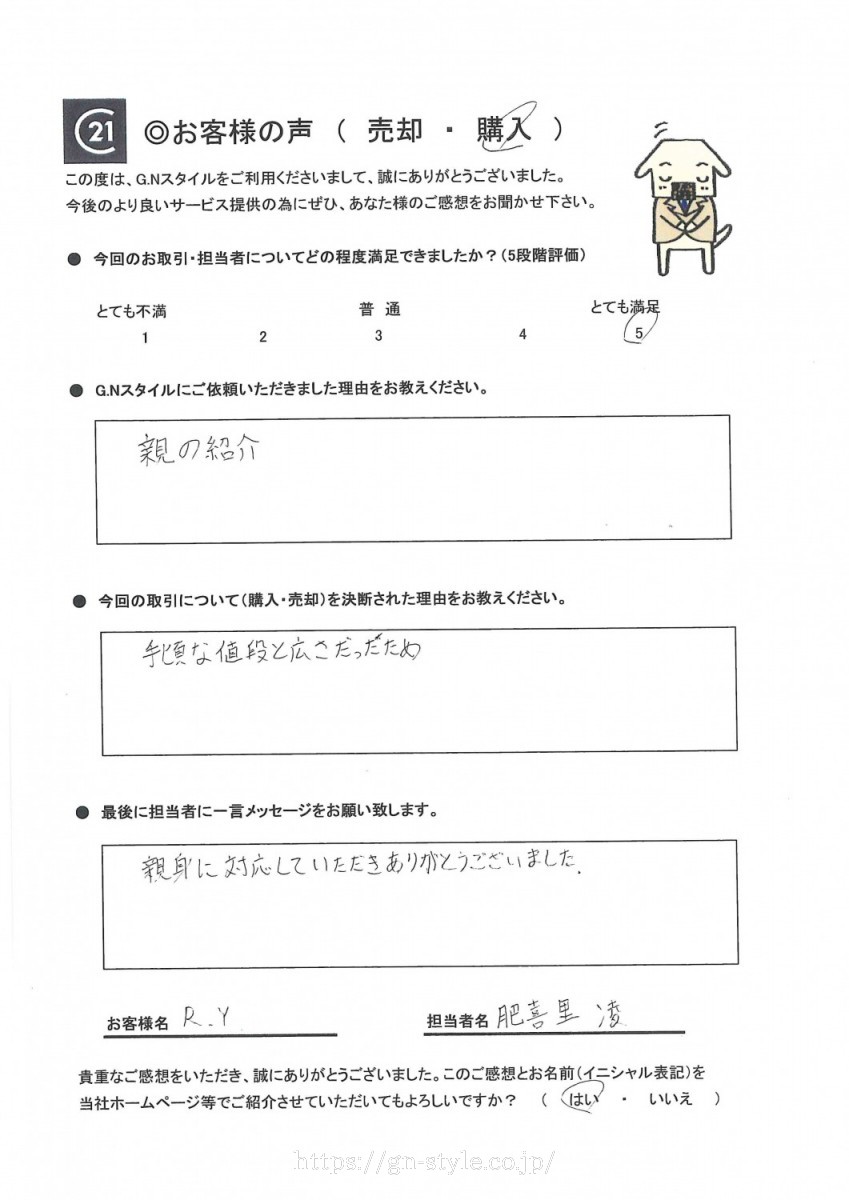 21 ◎お客様の声 ( 売却 ・ 購入 )
この度は、G.Nスタイルをご利用くださいまして、誠にありがとうございました。
今後のより良いサービス提供の為にぜひ、あなた様のご感想をお聞かせ下さい。
● 今回のお取引・担当者についてどの程度満足できましたか？(5段階評価)
とても不満 普 通 とても満足
1 2 3 4 5
● G.Nスタイルにご依頼いただきました理由をお教えください。
親の紹介
● 今回の取引について(購入・売却)を決断された理由をお教えください。
手頃な値段と広さだっだため
● 最後に担当者に一言メッセージをお願い致します。
親身に対応していただきありがとうございました.
お客様名 R.Y 担当者名 肥喜里 凌
貴重なご感想をいただき、誠にありがとうございました。このご感想とお名前(イニシャル表記)を
当社ホームページ等でご紹介させていただいてもよろしいですか？ ( はい ・ いいえ )
https://gn-style.co.jp/